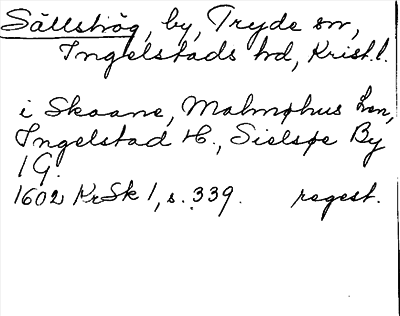 Sällshög, by, Tryde sn,
Ingelstads hd, Krist.l.
i Skaane, Malmøhus Len,
Ingelstad H., Sielsøe By
1 G.
1602 KrSk 1, s. 339. regest.